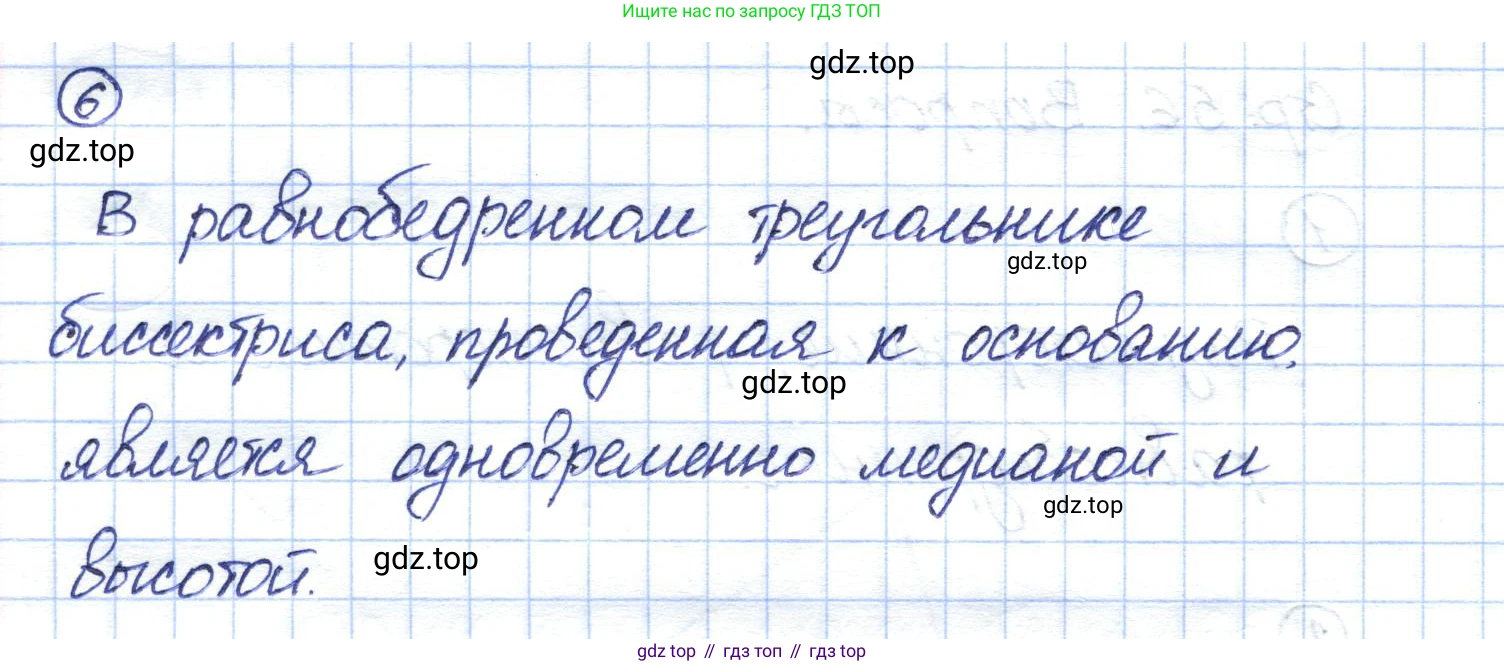 Ищите нас по запросу ГДЗ ТОП
gdz.top
6
gdz.top
В равнобедренном треугольнике
gdz.top
биссектриса, проведенная к основанию,
gdz.top
является одновременно медианой и
gdz.top
высотой.
gdz.top
gdz top // гдз топ // гдз top